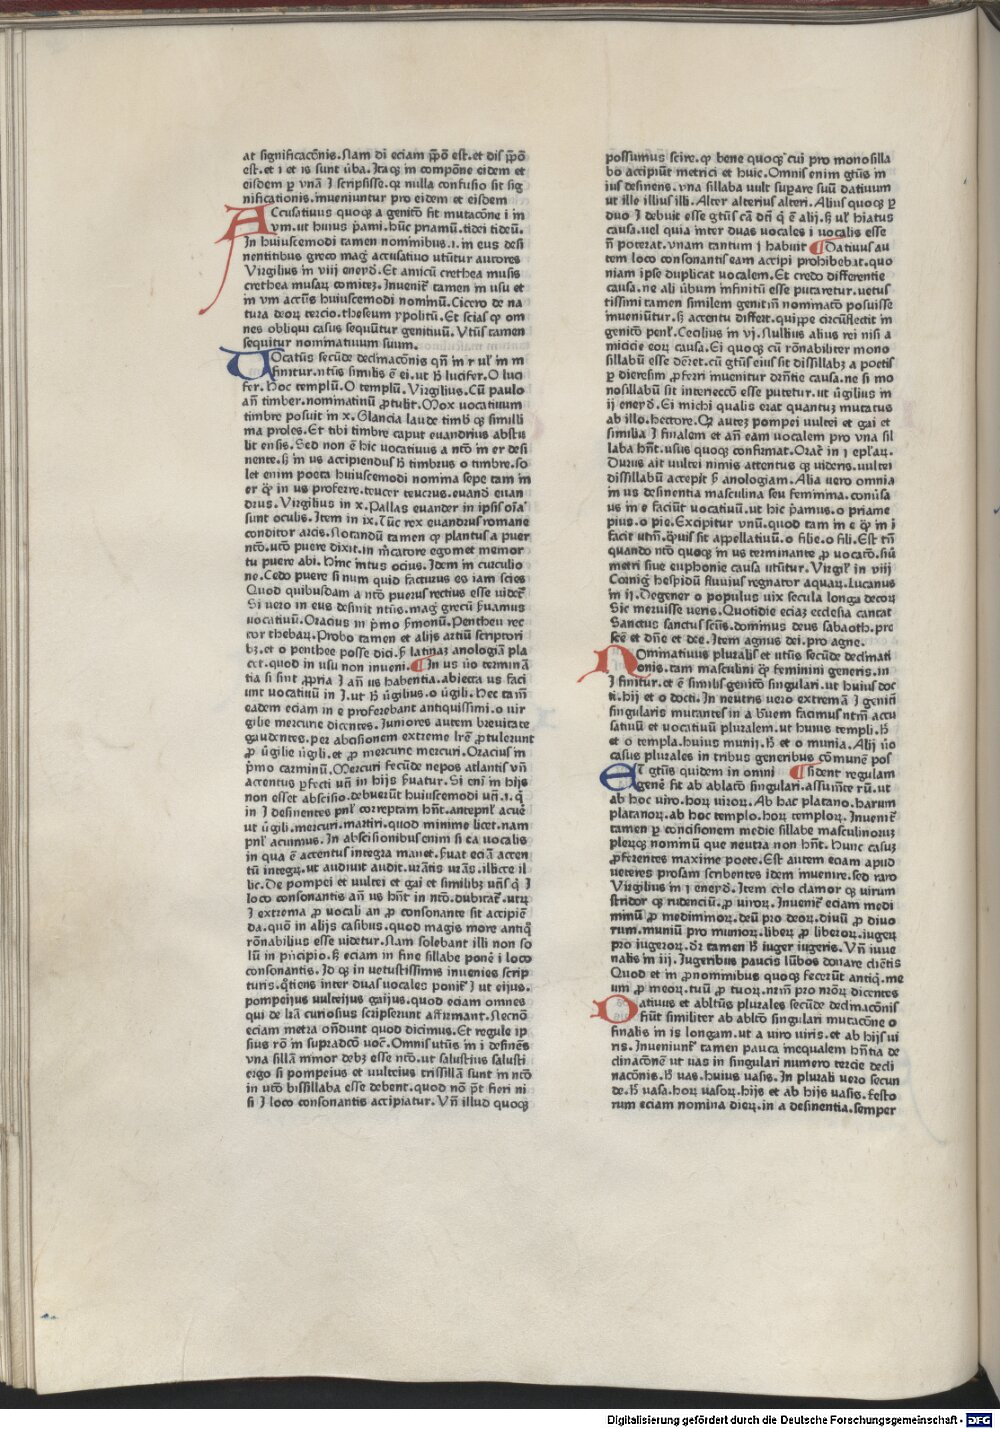 at significacōnis. Nam di eciam p̄pō est. et dis p̄pō
est. et i et is sunt ūba. Itaqꝫ in compōne eidem et
eisdem ꝑ vnā I scripsisse. qꝫ nulla confusio sit sig
nificationis. inveniuntur pro eidem et eisdem
Accusatiuus quoqꝫ a genitō fit mutacōne i in
vm. ut huius p̄ami. hūc priamū. tidei tideū.
In huiuscemodi tamen nominibus .i. in eus desi
nentitibus greco mag̃ accusatiuo utūtur auctores
Virgilius in viij eneyđ. Et amicū crethea musis
crethea musaꝝ comiteꝫ. Invenit̃ tamen in usu et
in vm accūs huiuscemodi nominū. Cicero de na
tura deoꝝ tercio. theseum ypolitū. Et scias qꝫ om
nes obliqui casus sequūtur genitiuū. Vtūs tamen
sequitur nominatiuum suum.
Vocatūs secūde declinacōnis qñ in r ul̄ in m
finitur. ntūs similis ē ei. ut ħ lucifer. O luci
fer. hoc templū. O templū. Virgilius. Cū paulo
añ timber. nominatinū ꝓtulit. Mox uocatiuum
timbre posuit in x. Glancia laude timb̄ qꝫ simili
ma proles. Et tibi timbre caput euandrius abstu
lit ensis. Sed non ē hic uocatiuus a ntō in er desi
nente. sꝫ in us accipiendus ħ timbrus o timbre. so
let enim poeta huiuscemodi nomina sepe tam in
er q̄ in us proferre. teucer teucrus. euand̄ euan
drus. Virgilius in x. Pallas euander in ipsis oīa
sunt oculis. Item in ix. Tūc rex euandrus romane
conditor arcis. Notandū tamen qꝫ plantus a puer
ntō. uctō puere dixit. in m̄catore egomet memor
tu puere abi. hinc intus ocius. Idem in curculio
ne. Cedo puere si num quid facturus es iam scies
Quod quibusdam a ntō puerus rectius esse uidet̃
Si uero in eus desinit ntūs. mag̃ grecū ẜuamus
uocatiuū. Oracius in p̄mo ẜmonū. Pentheu rec
tor thebaꝝ. Probo tamen et alijs artiū scriptori
bꝫ. et o penthee posse dici. ẜ latinaꝫ anologiā pla
cet. quod in usu non inueni. In us ūo terminā
tia si sint ꝓpria I añ us habentia. abiecta us faci
unt uocatiuū in I. ut ħ ūgilius. o ūgili. Hec tam̄
eadem eciam in e proferebant antiquissimi. o uir
gilie mercurie dicentes. Juniores autem breuitate
gaudentes. per abcisionem extreme lr̄e ꝓtulerunt
ꝓ ūgilie ūgili. et ꝓ mercurie mercuri. Oracius in
p̄mo carminū. Mercuri fecūde nepos atlantis vñ
accentus ꝑfecti uñ in hijs ẜuatur. Si eni in hijs
non esset abscisio. debuerūt huiuscemodi uñ .i. q̄
in I desinentes pnl̄ correptam hñt. antepnl̄ acuē
ut ūgili. mercuri. martiri. quod minime licet. nam
pnl̄ acuimus. In abscisionibus enim si ea uocalis
in qua ē accentus integra manet. ẜuat eciā accen
tū integꝝ. ut audiuit audit. uratis uras. illicce il
lic. De pompei et uultei et gai et similibꝫ uñs q̄ I
loco consonantis añ us hñt in ntō. dubitat̃. utꝝ
I extrema ꝓ uocali an ꝓ consonante sit accipiē
da. quō in alijs casibus. quod magis more antiq̄
rōnabilius esse uidetur. Nam solebant illi non so
lū in p̄ncipio. sꝫ eciam in fine sillabe ponē i loco
consonantis. Jd qꝫ in uetustissimis inuenies scrip
turis. q̄tiens inter duas uocales ponit̃ I ut eijus.
pompeijus uulteijus gaijus. quod eciam omnes
qui de lr̄a curiosius scripserunt affirmant. Necnō
eciam metra oñdunt quod dicimus. Et regule ip
sius rō in supradcō uoc̄. Omnis utūs in i desinēs
vna sillā minor debꝫ esse ntō. ut salustius salusti
ergo si pompeius et uulteius trissillā sunt in ntō
in utō bissillaba esse debent. quod nō p̄t fieri ni
si I loco consonantis accipiatur. Vñ illud quoqꝫ
possumus scire. qꝫ bene quoqꝫ cui pro monosilla
bo accipiūt metrici et huic. Omnis enim gtūs in
ius desinens. vna sillaba uult supare suū datiuum
ut ille illius illi. Alter alterius alteri. Alius quoqꝫ ꝑ
duo I debuit esse gtūs cā drī q̄ ē alij. sꝫ ul̄ hiatus
causa. uel quia inter duas uocales i uocalis esse
ñ poterat. vnam tantum I habuit Datiuus au
tem loco consonantis eam accipi prohibebat. quo
niam ipse duplicat uocalem. Et credo differentie
causa. ne ali ūbum infinitū esse putaretur. uetus
tissimi tamen similem genitm̄ nominatō posuisse
inueniūtur. sꝫ accentu differt. quippe circūflectit in
genitō penl̄. Cecilius in vj. Nullius alius rei nisi a
micicie eoꝝ causa. Ei quoqꝫ cū rōnabiliter mono
sillabū esse dēret. cū gtūs eius sit dissillabꝫ a poetis
ꝑ dieresim ꝓferri inuenitur drñtie causa. ne si mo
nosillabū sit interieccō esse putetur. ut ūgilius in
ij eneyđ. Ei michi qualis erat quantuꝫ mutatus
ab illo. hectore. Qꝫ auteꝫ pompei uultei et gai et
similia I finalem et añ eam uocalem pro vna sil
laba hñt. usus quoqꝫ confirmat. Orac̄ in j epl̄aꝝ.
Durus ait uultei nimis attentus qꝫ uideris. uultei
dissillabū accepit ẜ anologiam. Alia uero omnia
in us desinentia masculina seu feminina. conūsa
us in e faciūt uocatiuū. ut hic p̄amus. o priame
pius. o pie. Excipitur vnū. quod tam in e q̄ in i
facit utm̄. q̄uis sit appellatiuū. o filie. o fili. Est tñ
quando ntō quoqꝫ in us terminante ꝓ uocatō. siū
metri siue euphonie causa utūtur. Virgil̄ in viij
Cornig̃ hespidū fluuius regnator aquaꝝ. Lucanus
in ij. Degener o populus uix secula longa decoꝝ
Sic meruisse ueris. Quotidie eciaꝫ ecclesia cantat
Sanctus sanctus scūs. dominus deus sabaoth. pre
scē et dñe et dee. Item agnus dei. pro agne.
Nominatiuus pluralis et utūs secūde declinati
onis. tam masculini q̄ feminini generis. in
I finitur. et ē similis genitō singulari. ut huius doc
ti. hij et o docti. In neutris uero extremā I genitī
singularis mutantes in a b̄uem facimus ntm̄ accu
satiuū et uocatiuū pluralem. ut huius templi. ħ
et o templa. huius munij. ħ et o munia. Alij ūo
casus plurales in tribus generibus cōmunē pos
Et gtūs quidem in omni sident regulam
genē fit ab ablatō singulari. assumte rū. ut
ab hoc uiro. hoꝝ uiroꝝ. Ab hac platano. harum
platanoꝝ. ab hoc templo. hoꝝ temploꝝ. Invenit̃
tamen ꝑ concisionem medie sillabe masculinoruꝫ
plerūqꝫ nominū que neutra non hñt. Hunc casuꝫ
ꝓferentes maxime poete. Est autem eciam apud
ueteres prosam scribentes idem inuenire. sed raro
Virgilius in j eneyđ. Item celo clamor qꝫ uirum
stridor qꝫ rudenciū. ꝓ uiroꝝ. Invenit̃ eciam medi
minū ꝓ mediminoꝝ. deū pro deoꝝ. diuū ꝓ diuo
rum. muniū pro munioꝝ. liberꝝ ꝓ liberoꝝ. iugeꝝ
pro iugeroꝝ. dr̄ tamen ħ iuger iugeris. Vñ iuue
nalis in iij. Jugeribus paucis lūbos donare cliētis
Quod et in ꝓnominibus quoqꝫ fecerūt antiq̄. me
um ꝓ meoꝝ. tuū ꝓ tuoꝝ. nrm̄ pro nrōꝝ dicentes
Datiuus et abltūs plurales secūde declinacōnis
fiūt similiter ab abltō singulari mutacōne o
finalis in is longam. ut a uiro uiris. et ab hijs ui
ris. Inveniunt̃ tamen pauca inequalem hñtia de
clinacōnē ut uas in singulari numero tercie decli
nacōnis. ħ uas. huius uasis. In plurali uero secun
de. ħ uasa. hoꝝ uasoꝝ. hijs et ab hijs uasis. festo
rum eciam nomina dieꝝ. in a desinentia. semper
Digitalisierung gefördert durch die Deutsche Forschungsgemeinschaft - DFG